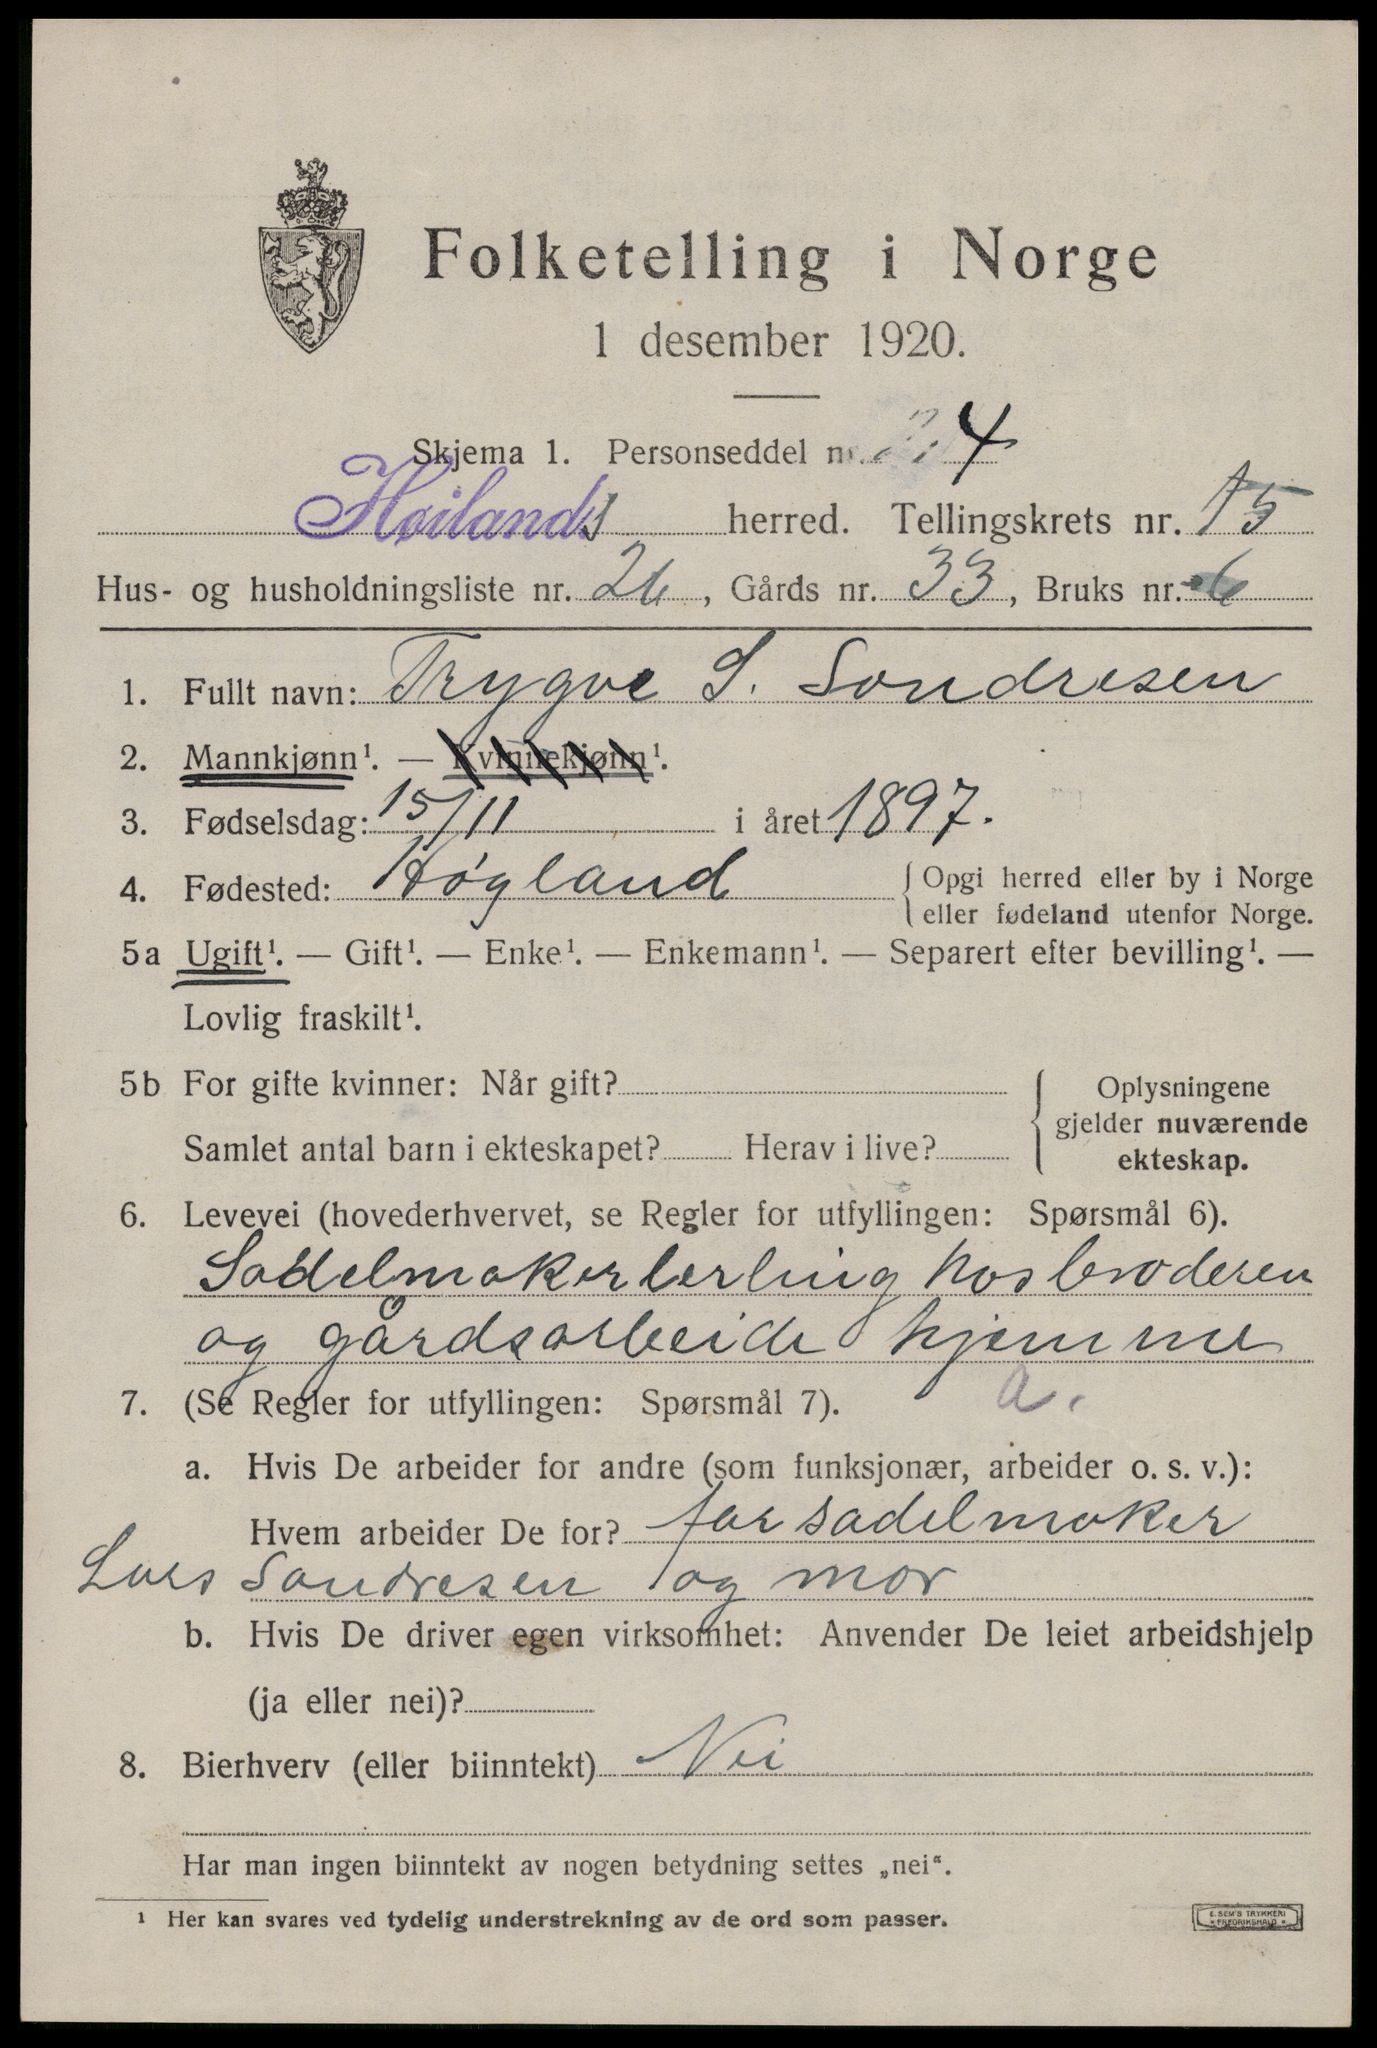 Folketelling i Norge
1 desember 1920.
Skjema 1. Personseddel nr. 4
Høilands herred. Tellingskrets nr. 15
Hus- og husholdningsliste nr. 26, Gårds nr. 33, Bruks nr. 6
1. Fullt navn: Trygve S. Sondresen
2. Mannkjønn¹. — Kvinnekjønn¹.
3. Fødselsdag: 15/11 i året 1897.
4. Fødested: Høgland { Opgi herred eller by i Norge
eller fødeland utenfor Norge.
5a Ugift¹. — Gift¹. — Enke¹. — Enkemann¹. — Separert efter bevilling¹. —
Lovlig fraskilt¹.
5b For gifte kvinner: Når gift?
Samlet antal barn i ekteskapet? Herav i live?
Oplysningene
gjelder nuværende
ekteskap.
6. Levevei (hovederhvervet, se Regler for utfyllingen: Spørsmål 6).
Sadelmakerlerling hos broderen
og gårdsarbeide hjemme
7. (Se Regler for utfyllingen: Spørsmål 7). a.
a. Hvis De arbeider for andre (som funksjonær, arbeider o. s. v.):
Hvem arbeider De for? for sadelmaker
Lars Sondresen og mor
b. Hvis De driver egen virksomhet: Anvender De leiet arbeidshjelp
(ja eller nei)?
8. Bierhverv (eller biinntekt) Nei
Har man ingen biinntekt av nogen betydning settes „nei“.
¹ Her kan svares ved tydelig understrekning av de ord som passer.
E. SEM'S TRYKKERI
FREDRIKSHALD